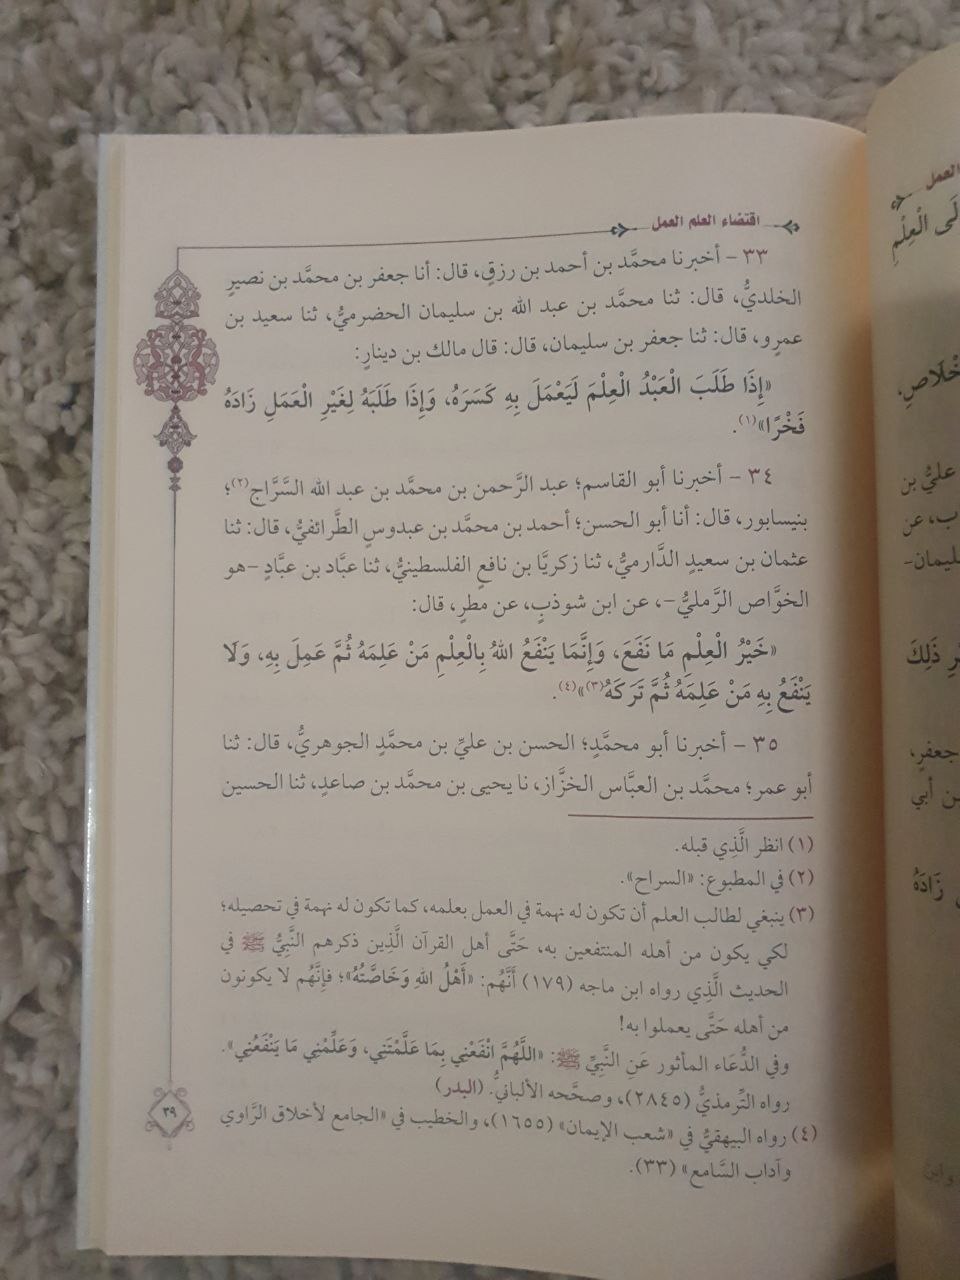 اقتضاء العلم العمل
٣٣ - أخبرنا محمَّد بن أحمد بن رزقٍ، قال: أنا جعفر بن محمَّد بن نصيرٍ
الخلديُّ، قال: ثنا محمَّد بن عبد الله بن سليمان الحضرميُّ، ثنا سعيد بن
عمرٍو، قال: ثنا جعفر بن سليمان، قال: قال مالك بن دينارٍ:
«إِذَا طَلَبَ الْعَبْدُ الْعِلْمَ لِيَعْمَلَ بِهِ كَسَرَهُ، وَإِذَا طَلَبَهُ لِغَيْرِ الْعَمَلِ زَادَهُ
فَخْرًا»(١).
٣٤ - أخبرنا أبو القاسم؛ عبد الرَّحمن بن محمَّد بن عبد الله السَّرَّاج(٢)؛
بنيسابور، قال: أنا أبو الحسن؛ أحمد بن محمَّد بن عبدوسٍ الطَّرائفيُّ، قال: ثنا
عثمان بن سعيدٍ الدَّارميُّ، ثنا زكريَّا بن نافعٍ الفلسطينيُّ، ثنا عبَّاد بن عبَّادٍ -هو
الخوَّاص الرَّمليُّ-، عن ابن شوذبٍ، عن مطرٍ، قال:
«خَيْرُ الْعِلْمِ مَا نَفَعَ، وَإِنَّمَا يَنْفَعُ اللهُ بِالْعِلْمِ مَنْ عَلِمَهُ ثُمَّ عَمِلَ بِهِ، وَلَا
يَنْفَعُ بِهِ مَنْ عَلِمَهُ ثُمَّ تَرَكَهُ(٣)»(٤).
٣٥ - أخبرنا أبو محمَّدٍ؛ الحسن بن عليِّ بن محمَّدٍ الجوهريُّ، قال: ثنا
أبو عمر؛ محمَّد بن العبَّاس الخزَّاز، نا يحيى بن محمَّد بن صاعدٍ، ثنا الحسين
(١) انظر الَّذِي قبله.
(٢) في المطبوع: «السراح».
(٣) ينبغي لطالب العلم أن تكون له نهمة في العمل بعلمه، كما تكون له نهمة في تحصيله؛
لكي يكون من أهله المنتفعين به، حَتَّى أهل القرآن الَّذِين ذكرهم النَّبِيُّ ﷺ في
الحديث الَّذِي رواه ابن ماجه (١٧٩) أَنَّهُم: «أَهْلُ اللهِ وَخَاصَّتُهُ»؛ فإِنَّهُم لا يكونون
من أهله حَتَّى يعملوا به!
وفي الدُّعَاء المأثور عَنِ النَّبِيِّ ﷺ: «اللَّهُمَّ انْفَعْنِي بِمَا عَلَّمْتَنِي، وَعَلِّمْنِي مَا يَنْفَعُنِي».
رواه التِّرمذيُّ (٢٨٤٥)، وصحَّحه الألبانيُّ. (البدر)
(٤) رواه البيهقيُّ في «شعب الإيمان» (١٦٥٥)، والخطيب في «الجامع لأخلاق الرَّاوي
وآداب السَّامع» (٣٣).
٣٩
العمل
لَى الْعِلْمِ
عليُّ بن
ليمان-
ذَلِكَ
جعفرٍ،
ن أبي
زَادَهُ